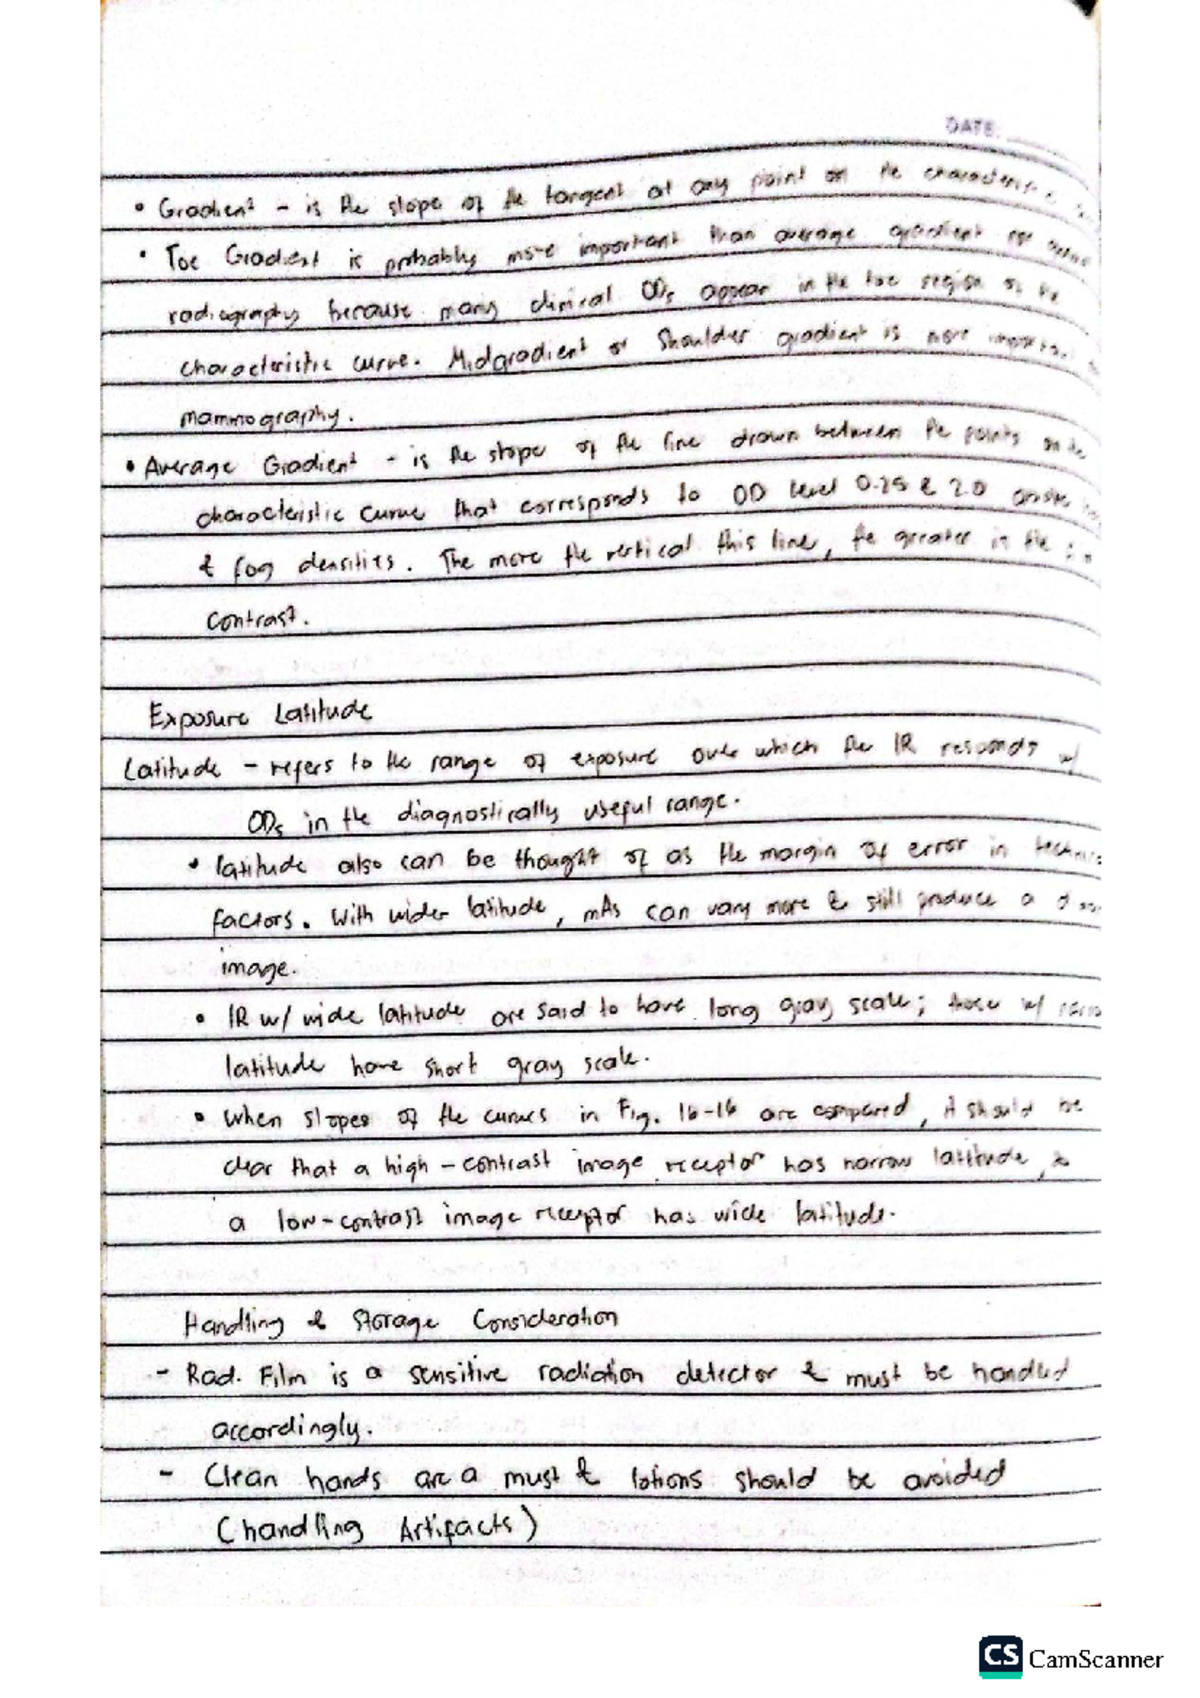 DATE:
• Gradient - is the slope of the tangent at any point on the characteristic
• Toe Gradient is probably more important than average gradient for
radiography because many clinical ODs appear in the toe region of the
characteristic curve. Midgradient or Shoulder gradient is more important
mammography.
• Average Gradient - is the slope of the line drawn between the points on the
characteristic curve that corresponds to OD level 0.25 & 2.0
& fog densities. The more the vertical this line, the greater is the
contrast.
Exposure Latitude
Latitude - refers to the range of exposure over which the IR responds w/
ODs in the diagnostically useful range.
• latitude also can be thought of as the margin of error in technic
factors. With wider latitude, mAs can vary more & still produce a
image.
• IR w/ wide latitude are said to have long gray scale; those w/
latitude have short gray scale.
• When slopes of the curves in Fig. 16-16 are compared, it should be
clear that a high-contrast image receptor has narrow latitude, &
a low-contrast image receptor has wide latitude.
Handling & Storage Consideration
- Rad. Film is a sensitive radiation detector & must be handled
accordingly.
- Clean hands are a must & lotions should be avoided
(handling Artifacts)
CS CamScanner